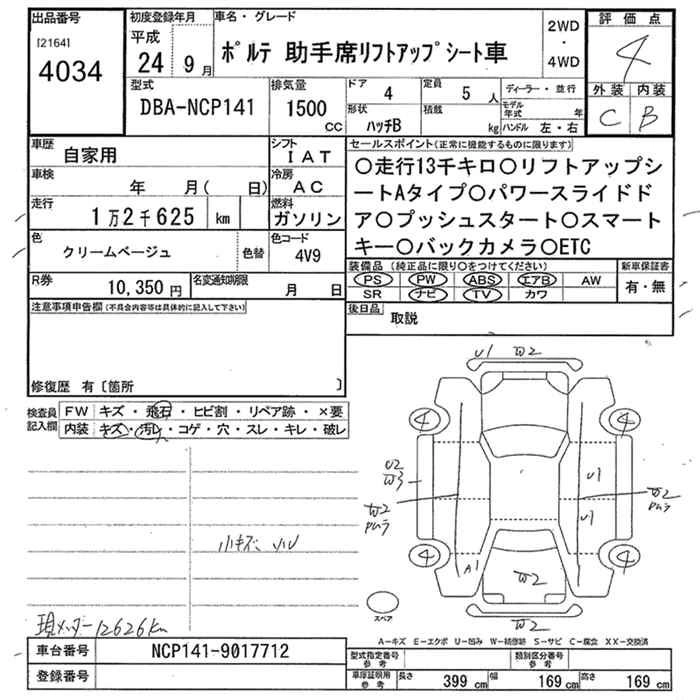 出品番号
[2164]
4034
初度登録年月
平成
24 9月
車名・グレード
ポルテ 助手席リフトアップシート車
2WD
・
4WD
評価点
4
外装 内装
C B
型式
DBA-NCP141
排気量
1500
CC
ドア
4
定員
5 人
形状
ハッチB
積載
kg
ディーラー・並行
モデル年式 年
ハンドル 左・右
車歴
自家用
シフト
IAT
車検
年 月( 日)
冷房
AC
走行
1万2千625 km
燃料
ガソリン
色
クリームベージュ
色替
色コード
4V9
R券
10,350 円
名変通知期限
月 日
セールスポイント(正常に機能するものに限ります)
○走行13千キロ○リフトアップシ
ートAタイプ○パワースライドド
ア○プッシュスタート○スマート
キー○バックカメラ○ETC
装備品 (純正品に限り○をつけてください)
PS PW ABS エアB AW
SR ナビ TV カワ
新車保証書
有・無
後日品
取説
注意事項申告欄(不具合内容等は具体的に記入して下さい)
修復歴 有〔箇所 〕
検査員
記入欄
FW キズ・飛石・ヒビ割・リペア跡・×要
内装 キズ・汚れ・コゲ・穴・スレ・キレ・破レ
小キズ 小U
現メーター12626km
U1 W2
4 4
U2
W3
W2
PUラ
U1
U1
W2
PUラ
4 4
A1
W2
W2
スペア
A-キズ E-エクボ U-凹み W-補修跡 S-サビ C-腐食 XX-交換済
車台番号
NCP141-9017712
登録番号
型式指定番号
参考
類別区分番号
参考
車庫証明用
参考
長さ 399 cm 幅 169 cm 高さ 169 cm